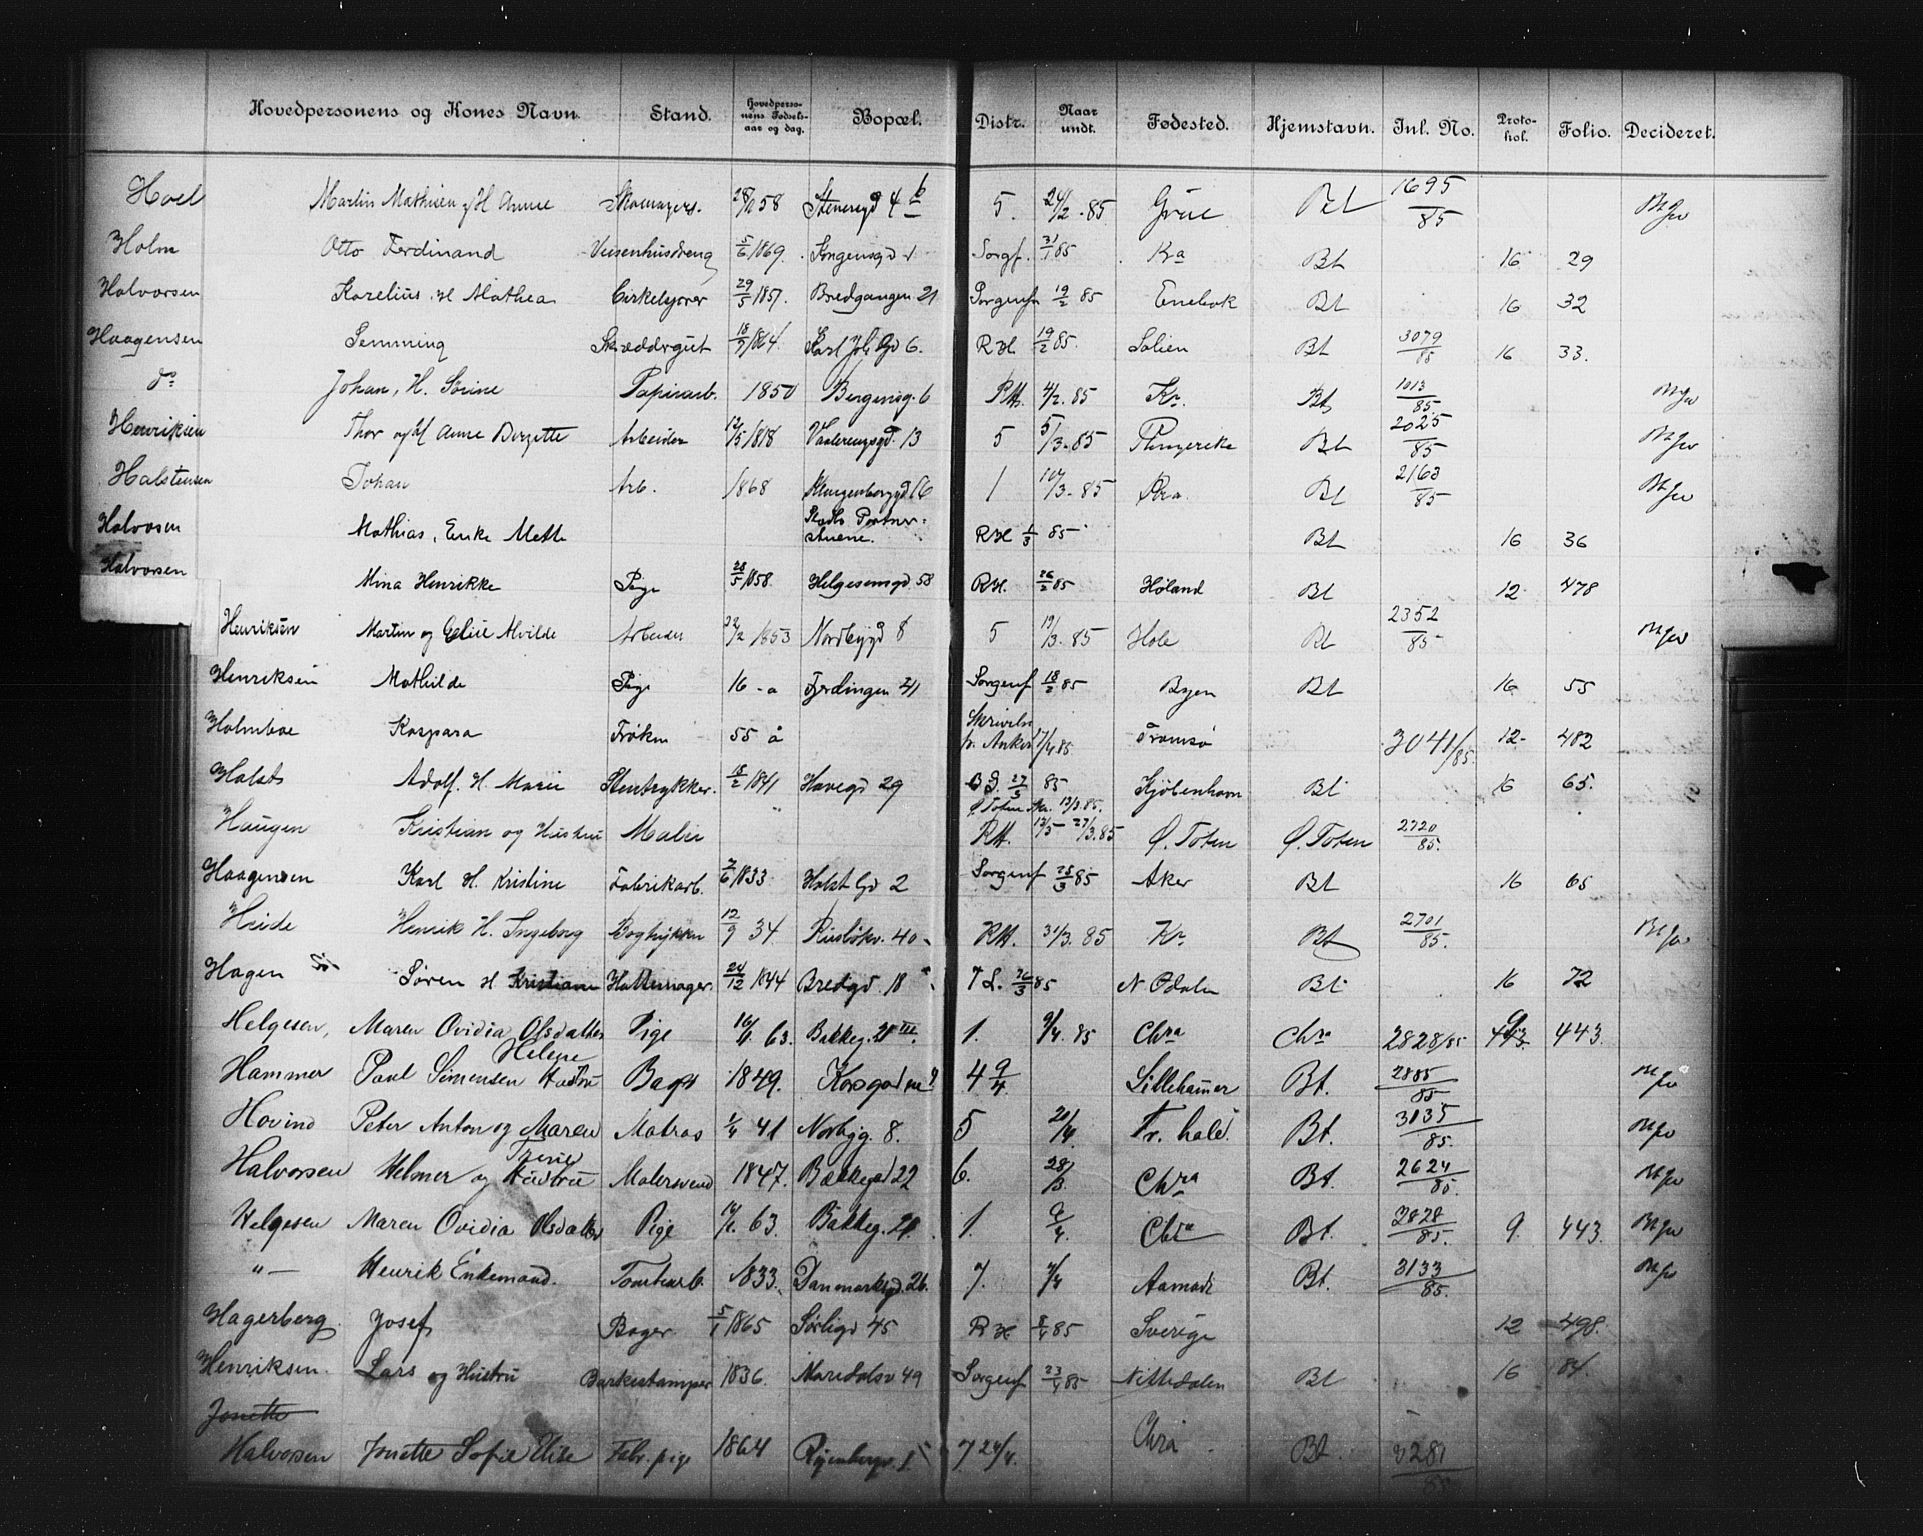 Hovedpersonens og Kones Navn. Stand. Hovedpersonens Fødselsaar og dag. Bopæl. Distr. Naar undt. Fødested. Hjemstavn. Inl. No. Protokol. Folio. Decideret.
Hoel Martin Mathisen og H Anne Skomagers. 58 Stenersgd 4 b 5. 24/2 - 85 Grue Bt 1695/85
Holm Otto Ferdinand 5/6 1869. 1 Sorgf. 31/1 85 Kra Bt 16 29
Halvorsen Karelius. H Mathea 29/5 1857. Bredgangen 21 Sorgenfr 19/2 85 Enebak Bt 16 32
Haagensen Hemming Skræddergut 18/9 1864. Karl Joh. Gd 6. RH 19/2 85. Solien Bt 3079/85 16 33.
do Johan, H. Sørine Papirarb. 1850 Bergensg. 6 RH. 4/2. 85 Kra. Bt 1013/85
Henriksen Thor og H Anne Bergette Arbeider 12/5 1818 Vaalerengsgd. 13 5 5/3 - 85 Ringerike Bt 2025/85
Halstensen Johan Arb. 1868 Klingenberggd 16 1 10/3 - 85 Kra. Bt 2163/85
Halvorsen Mathias, Enke Mette Stads Portnerstuene. RH 1/3 85 Bt 16 36
Halvorsen Mina Henrikke Pige 28/5 1858. Helgesensgd. 58 RH. 26/2 85 Høland Bt 12 478
Henriksen Martin og Eline Alvilde Arbeider 22/2 1853 Nordbygd 8 5 19/3 - 85 Hole Bt 2352/85
Henriksen Mathilde Pige 16 - a Fjerdingen 21 Sorgenf 18/2 85 Byen Bt 16 55
Holmboe Kaspara Frøken 55 å Skrivelse fr. Anker 17/4 85 Tromsø 3041/85. 12 - 482
Halst Adolf. H. Marie Stentrykker. 18/2 1841 Havegd 29 27/3 85 Kjøbenhavn Bt 16 65.
Haugen Kristian og Hustru Malie Ø Toten 13/3. 85. RH. 12/3 - 27/3. 85 Ø. Toten Ø. Toten 2720/85.
Haagensen Karl H. Kristine Fabrikarb. 7/6 1833 Holst Gd 2 Sorgenf 25/3 85 Aker Bt 16 65
Heide Henrik H. Ingeborg Bogtrykker 12/9 34. 40 RH. 31/3. 85 Kra Bt 2701/85.
Hagen Søren H Kristiane Hattemager. 24/12 1844 Bredgd. 18 7 L. 26/3 85 N Odalen Bt 16 72
Helgesen, Maren Ovidia Olsdatter Pige 16/1. 63. Bakkeg. 21 III. 1. 9/4. 85 Chra Chra 2828/85 9 443.
Hammer Paul Simensen Helene Hustru Bags 1849. Korsgad 4 9/4 Lillehamer Bt. 2885/85
Hovind Peter Anton og Maren Matros 1/4 41 Norbyg. 8. 5 20/4. Fr. hald. Bt. 3135/85.
Halvorsen Helmer og Trine Hustru Malersvend 1847. Bakkegd 22 6. 28/3. Chra Bt. 2624/85.
Helgesen Maren Ovidia Olsdatter Pige 16/1. 63. Bakkeg. 21. 1. 9/4. Chra Bt. 2828/85. 9. 443.
" — Henrik Enkemand. Tomtearb. 1833. Danmarksgd. 26. 7. 7/4 Aamodt Bt. 3133/85.
Hagerberg. Josef Bager 5/1 1865 Sørligd 45 RH 8/4 85 Sverige 12 498.
Henriksen. Lars og Hustru Barkestamper 1836. Maridalsv 49 Sorgenf 23/4 85 Nittedalen Bt 16 84.
Jonette
Halvorsen Jonette Sofie Elise Fabr. pige 1864 7 24/4. Chra Bt. 3281/85